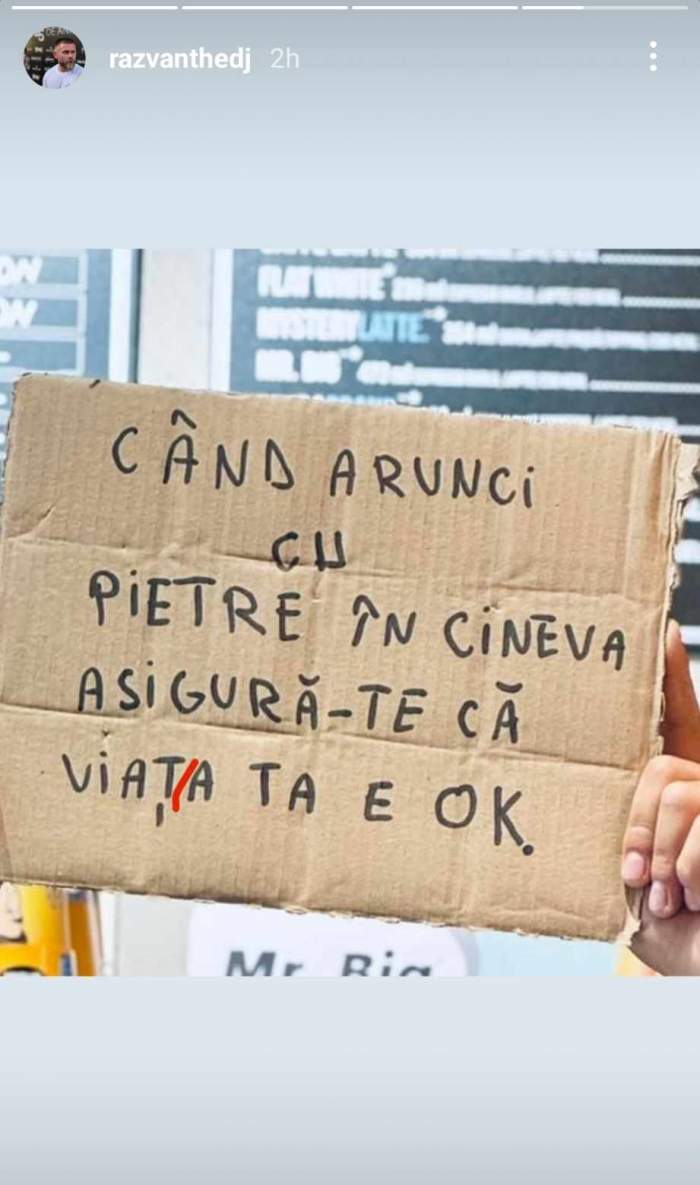 razvanthedj 2h
FLAT WHITE
MYSTERY LATTE
CÂND ARUNCI
CU
PIETRE ÎN CINEVA
ASIGURĂ-TE CĂ
VIAȚA TA E OK.
Mr Big